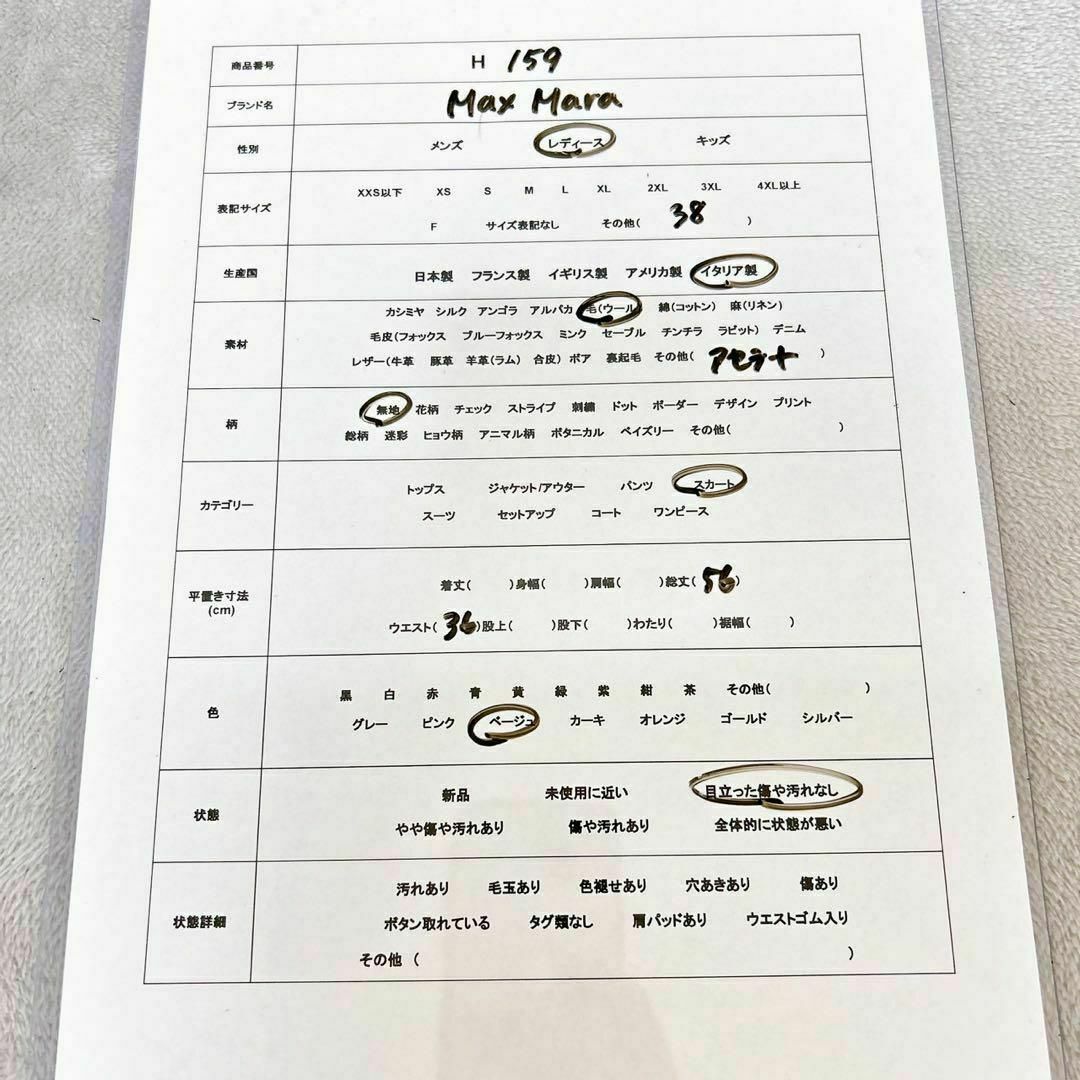 商品番号 H 159
ブランド名 Max Mara
性別 メンズ レディース キッズ
表記サイズ XXS以下 XS S M L XL 2XL 3XL 4XL以上
F サイズ表記なし その他( 38 )
生産国 日本製 フランス製 イギリス製 アメリカ製 イタリア製
素材 カシミヤ シルク アンゴラ アルパカ 毛(ウール) 綿(コットン) 麻(リネン)
毛皮(フォックス ブルーフォックス ミンク セーブル チンチラ ラビット) デニム
レザー(牛革 豚革 羊革(ラム) 合皮) ボア 裏起毛 その他( アセテート )
柄 無地 花柄 チェック ストライプ 刺繍 ドット ボーダー デザイン プリント
総柄 迷彩 ヒョウ柄 アニマル柄 ボタニカル ペイズリー その他( )
カテゴリー トップス ジャケット/アウター パンツ スカート
スーツ セットアップ コート ワンピース
平置き寸法 (cm) 着丈( )身幅( )肩幅( )総丈( 56 )
ウエスト( 36 )股上( )股下( )わたり( )裾幅( )
色 黒 白 赤 青 黄 緑 紫 紺 茶 その他( )
グレー ピンク ベージュ カーキ オレンジ ゴールド シルバー
状態 新品 未使用に近い 目立った傷や汚れなし
やや傷や汚れあり 傷や汚れあり 全体的に状態が悪い
状態詳細 汚れあり 毛玉あり 色褪せあり 穴あきあり 傷あり
ボタン取れている タグ類なし 肩パッドあり ウエストゴム入り
その他 ( )